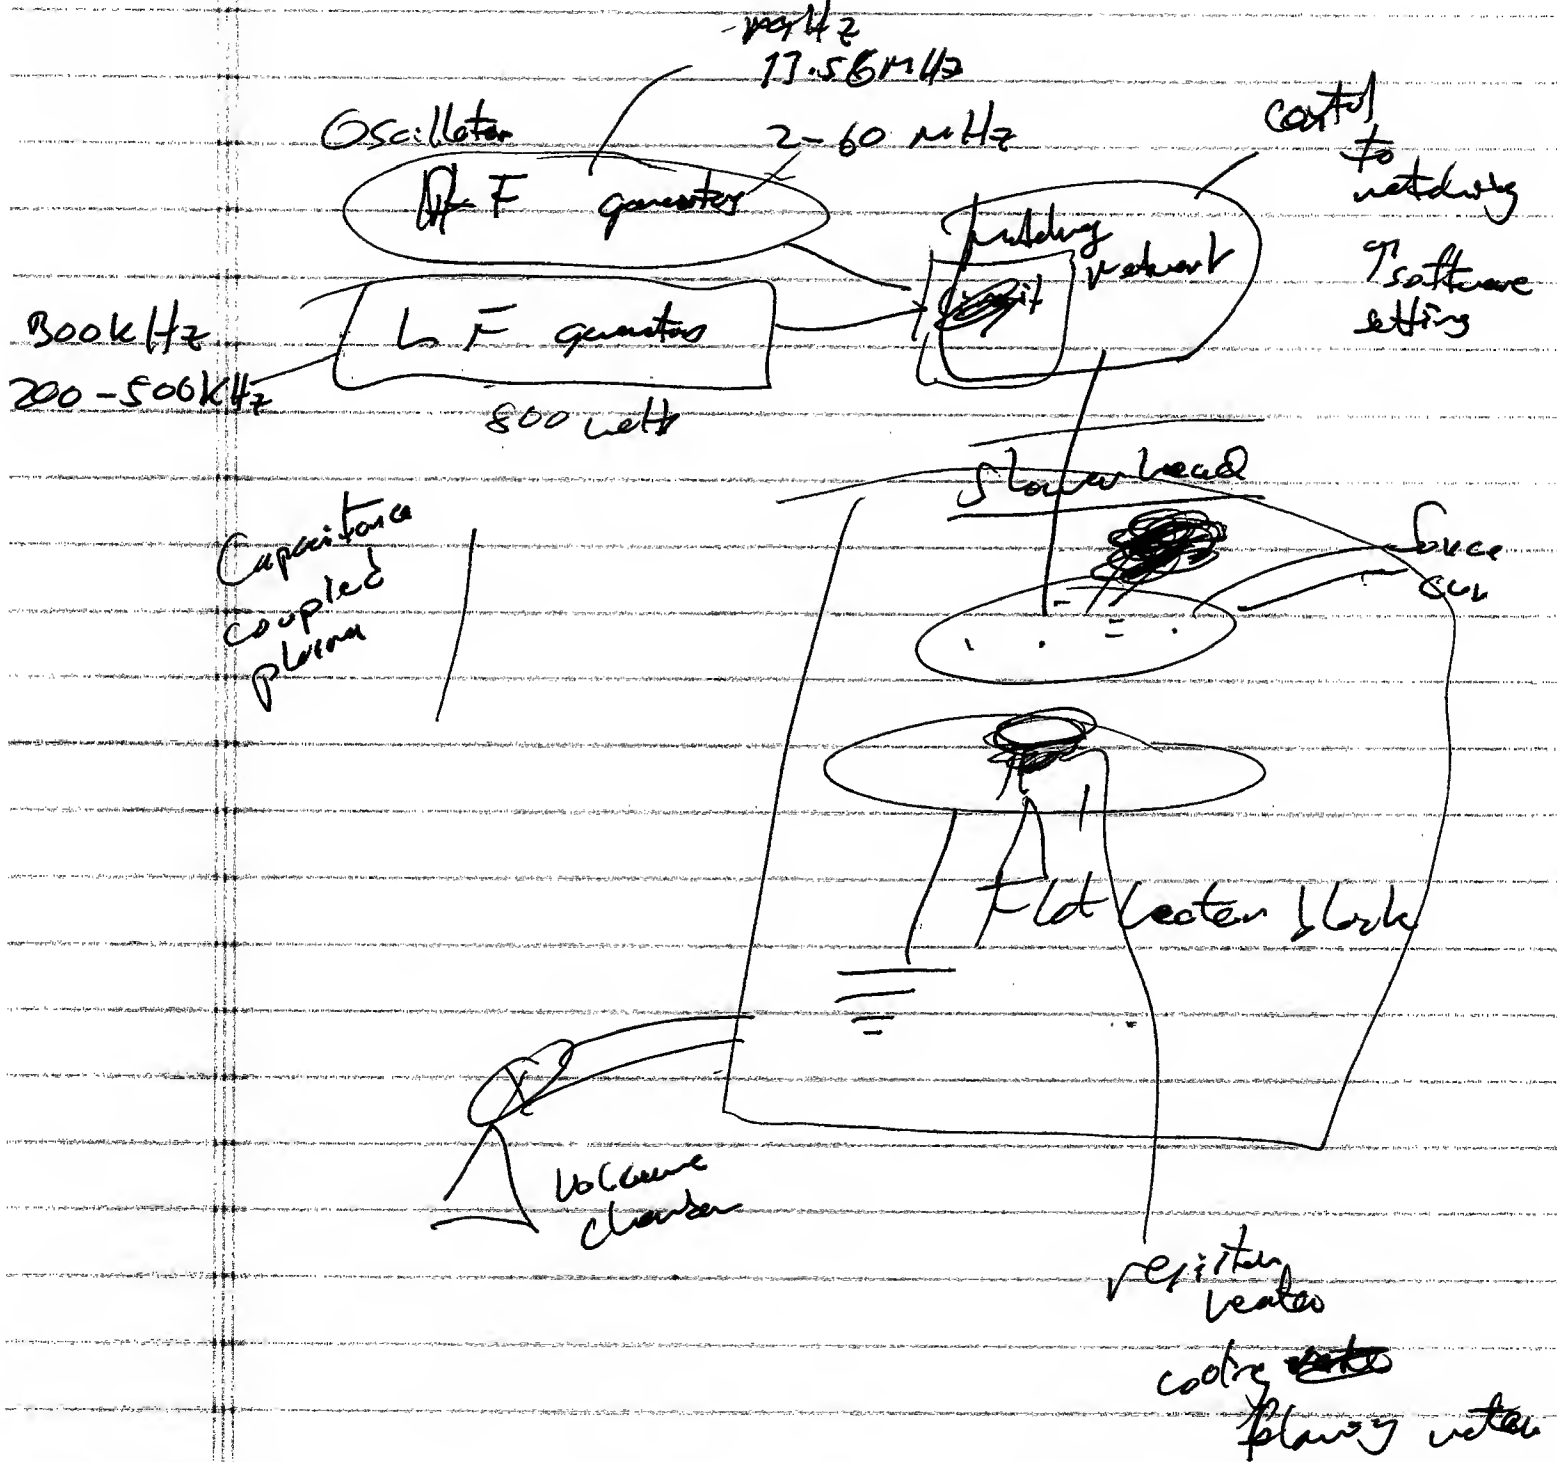 13.56MHz
Oscillator
2-60 MHz
RF generator
control
to
matching
software
setting
matching
network
300kHz
200-500kHz
LF generator
800 watts
Showerhead
Capacitance
coupled
plasma
Source
Flat heater block
chamber
resistor
heater
cooling
flowing water